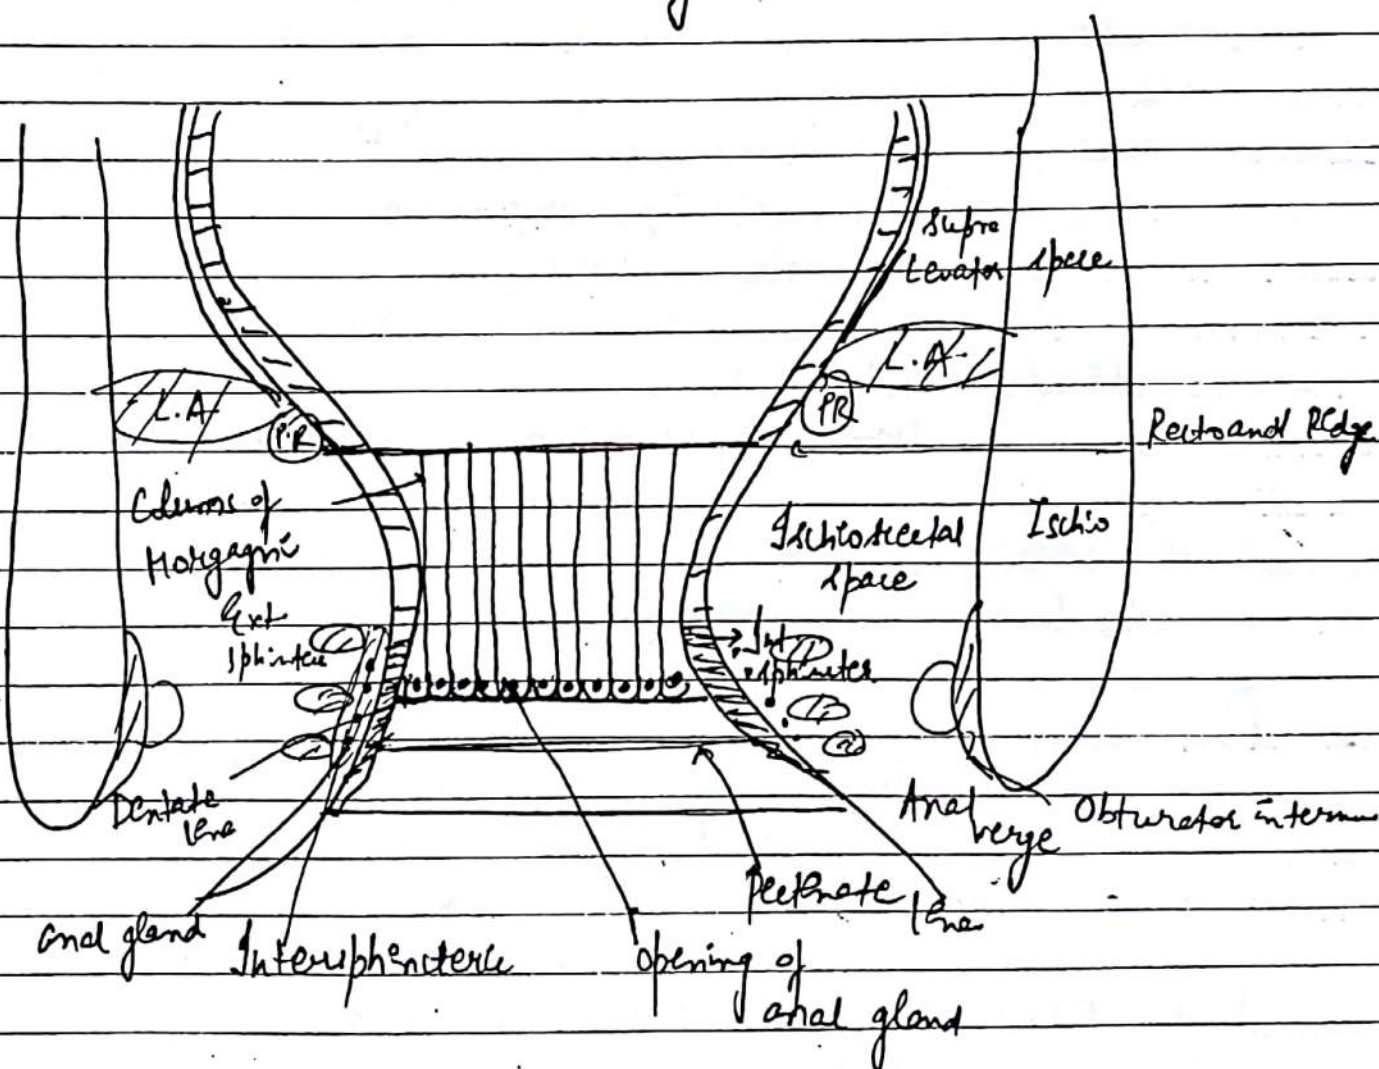 Supra
Levator space
L.A
L.A
P.R
PR
Rectoanal Ridge
Colums of
Morgagni
Ischiorectal
space
Ischio
Ext
sphincter
Int
sphincter
Dentate
line
Anal
verge
Obturator internus
Pectinate line
anal gland
Intersphincteric
opening of
anal gland